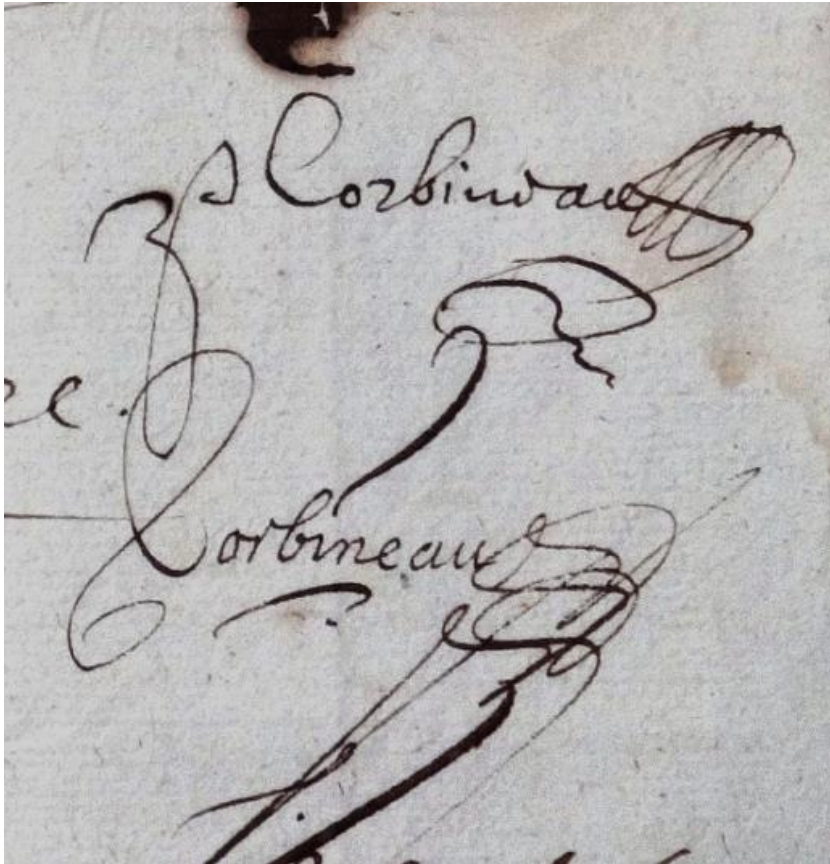 P Corbineau
ee.
Corbineau